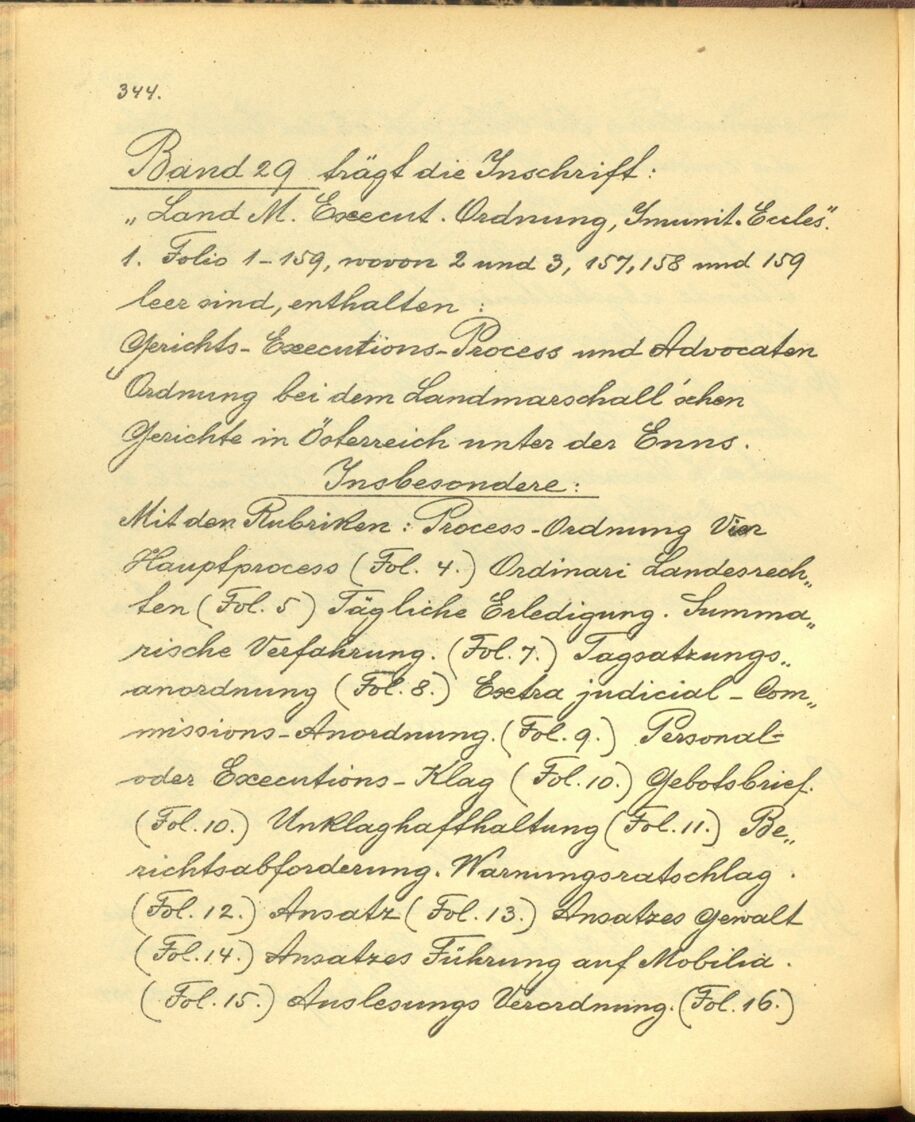 344.
Band 29 trägt die Inschrift:
„Land M. Execut. Ordnung, Imunit. Eccles".
1. Folio 1-159, wovon 2 und 3, 157, 158 und 159
leer sind, enthalten:
Gerichts-Executions-Process und Advocaten
Ordnung bei dem Landmarschall'schen
Gerichte in Österreich unter der Enns.
Insbesondere:
Mit den Rubriken: Process-Ordnung Vier
Hauptprocess (Fol. 4.) Ordinari Landesrech„
ten (Fol. 5) Tägliche Erledigung. Summa„
rische Verfahrung. (Fol. 7.) Tagsatzungs„
anordnung (Fol. 8.) Extra judicial - Com„
missions-Anordnung. (Fol. 9.) Personal=
oder Executions-Klag (Fol. 10.) Gebotsbrief.
(Fol. 10.) Unklaghafthaltung (Fol. 11.) Be„
richtsabforderung. Warnungsratschlag.
(Fol. 12.) Ansatz (Fol. 13.) Ansatzes Gewalt
(Fol. 14.) Ansatzes Führung auf Mobilia.
(Fol. 15.) Auslesungs Verordnung. (Fol. 16.)